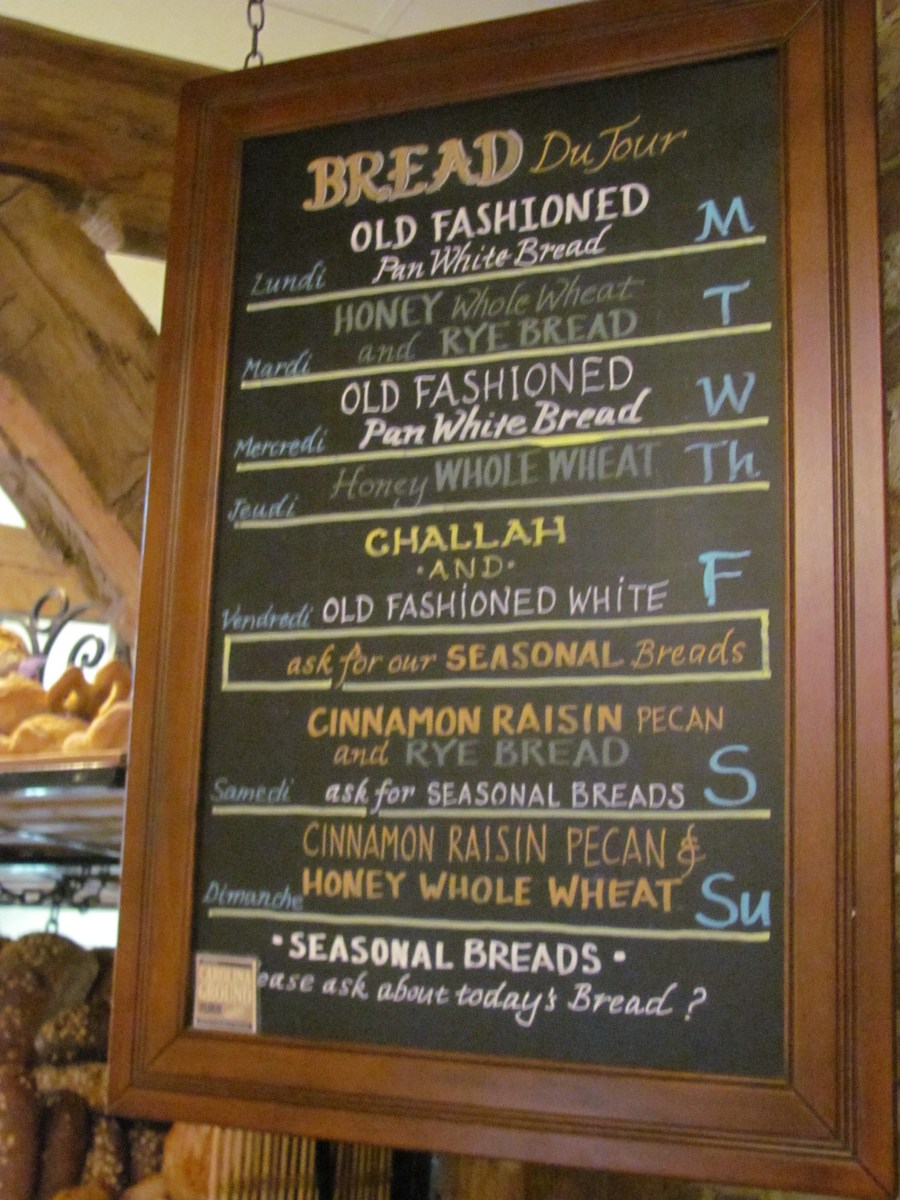 BREAD Du Jour
OLD FASHIONED
Pan White Bread
Lundi M
HONEY Whole Wheat
and RYE BREAD
Mardi T
OLD FASHIONED
Pan White Bread
Mercredi W
Honey WHOLE WHEAT
Jeudi Th
CHALLAH
·AND·
OLD FASHIONED WHITE
Vendredi F
ask for our SEASONAL Breads
CINNAMON RAISIN PECAN
and RYE BREAD
ask for SEASONAL BREADS
Samedi S
CINNAMON RAISIN PECAN &
HONEY WHOLE WHEAT
Dimanche Su
• SEASONAL BREADS •
ease ask about today's Bread ?
CAROLINA
GROUND